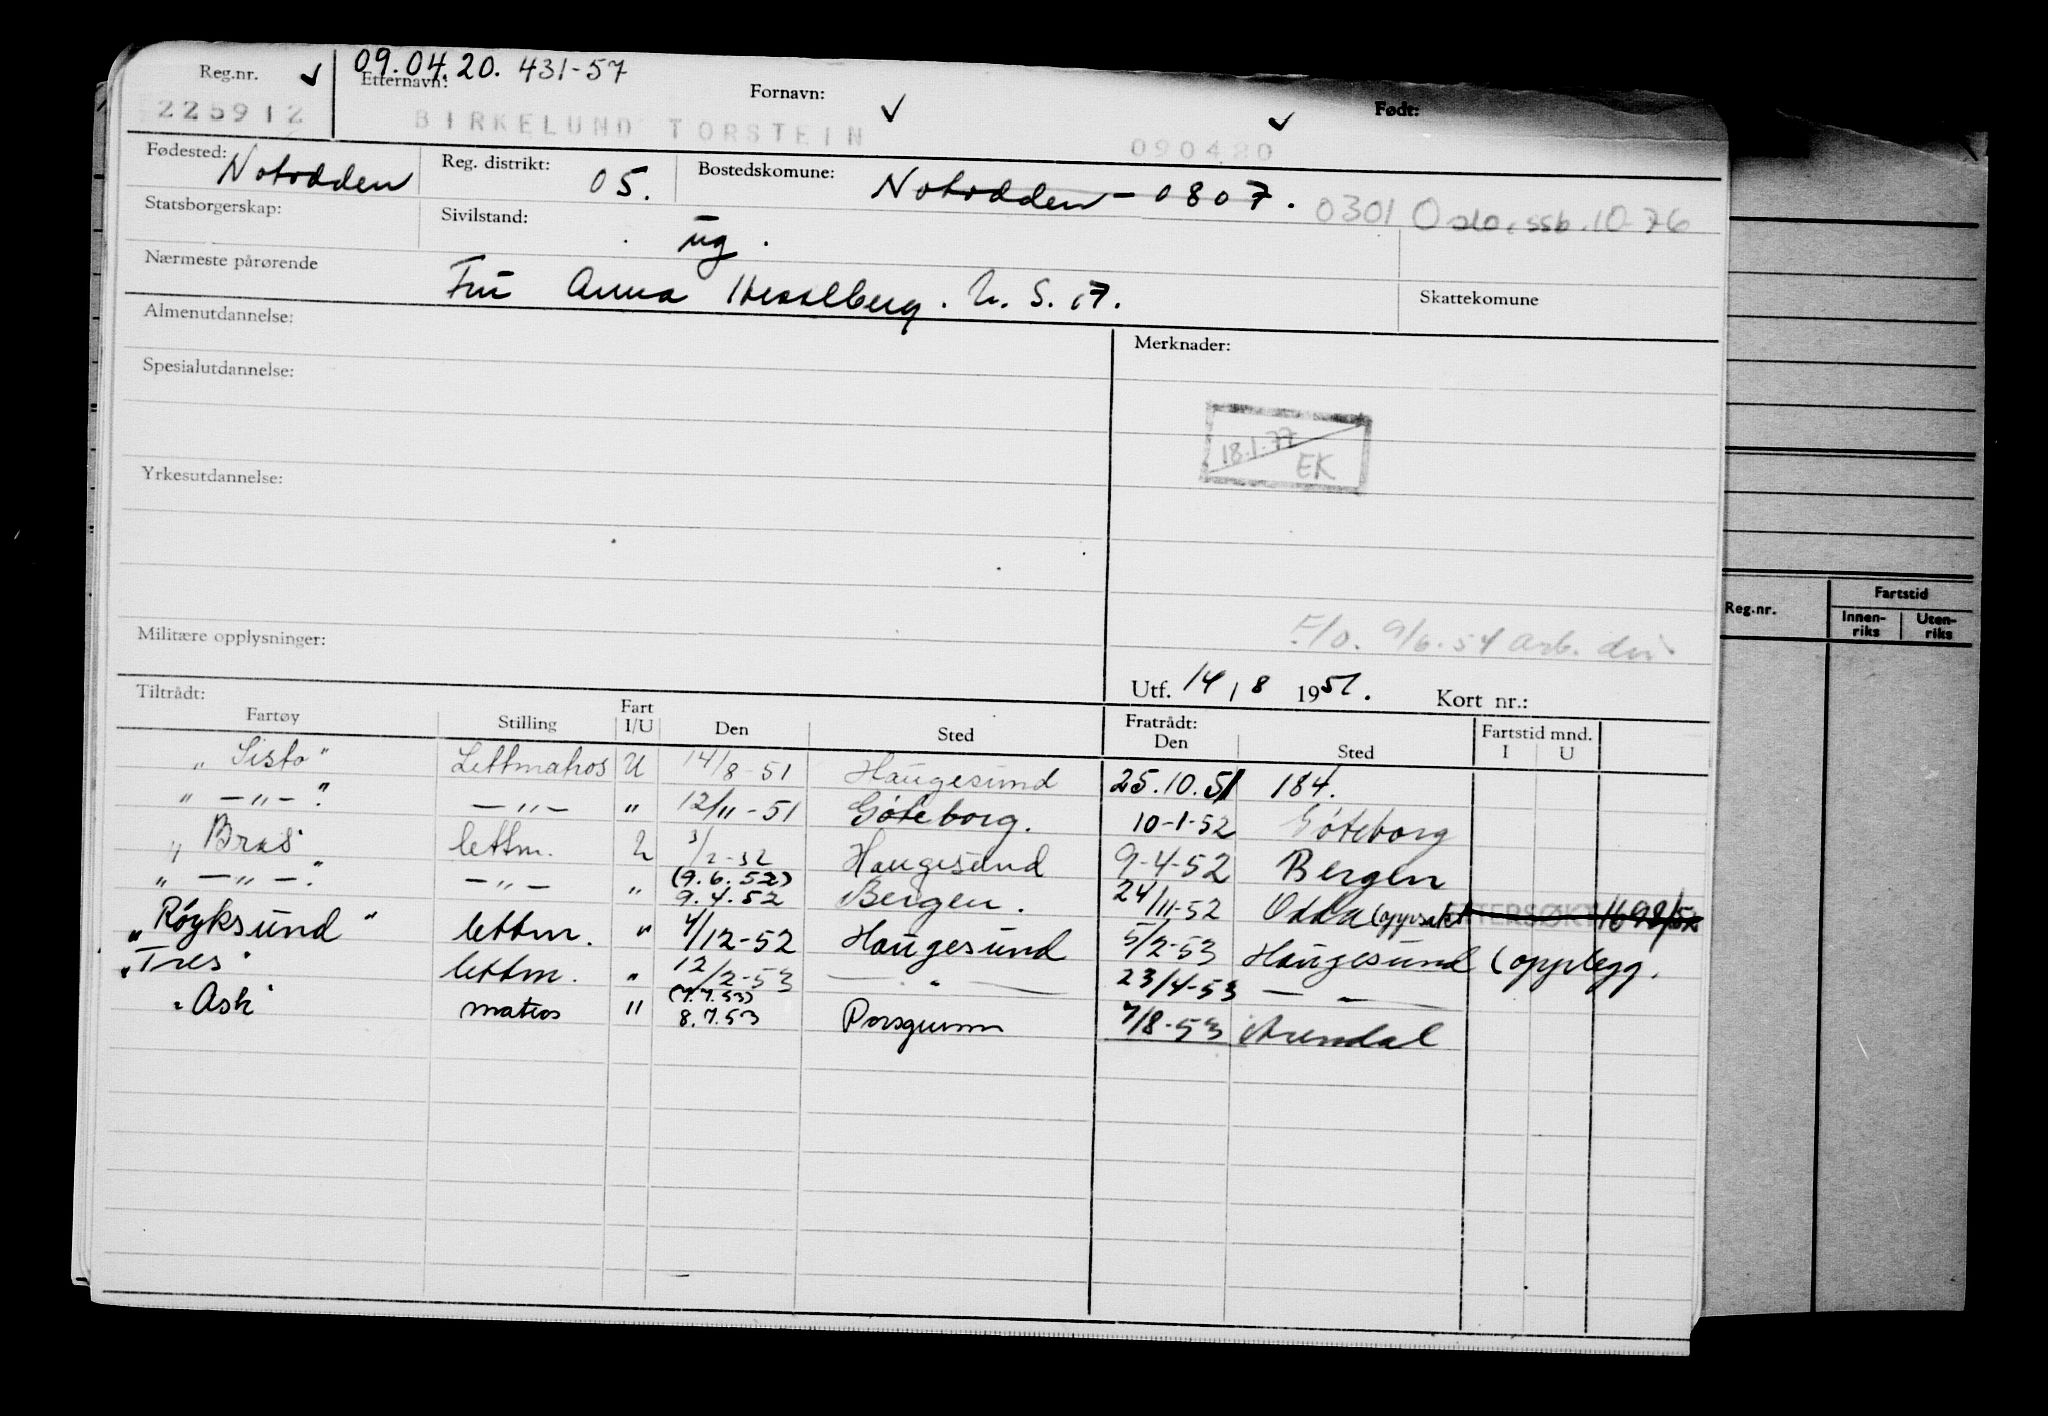 09.04.20. 431-57
Reg.nr. ✓ Etternavn: Fornavn: ✓ ✓ Født:
225912 BIRKELUND TORSTEIN 090420
Fødested: Notodden Reg. distrikt: 05. Bostedskomune: Notodden - 0807. 0301 Oslo, ssb. 10-76
Statsborgerskap: Sivilstand: ug.
Nærmeste pårørende Fru Anna Hesselberg. Skattekomune
Almenutdannelse: Merknader:
Spesialutdannelse:
18.1.77 EK
Yrkesutdannelse:
F/O. 9/6-54 arb. div.
Militære opplysninger:
Tiltrådt: Utf. 14/8 1951. Kort nr.:
Fartøy Stilling Fart I/U Den Sted Fratrådt: Den Sted Fartstid mnd. I U
"Sisto" Lettmatros U 14/8-51 Haugesund 25.10.51 184.
" -"- " -"- " 12/11-51 Göteborg. 10-1-52 Göteborg
"Bras" lettm. U 3/2-52 Haugesund 9-4-52 Bergen
" -"- " -"- " (9.6.52) 9.4.52 Bergen. 24/11-52 Odda 1698/52
"Røyksund" lettm. " 4/12-52 Haugesund 5/2-53 Haugesund (opplegg.
"Tres" lettm. " 12/2-53 — " — 23/4-53 — " —
"Ask" matros " (7.7.53) 8.7.53 Porsgrunn 7/8-53 Arendal
Reg.nr. Fartstid
Innen-riks Uten-riks